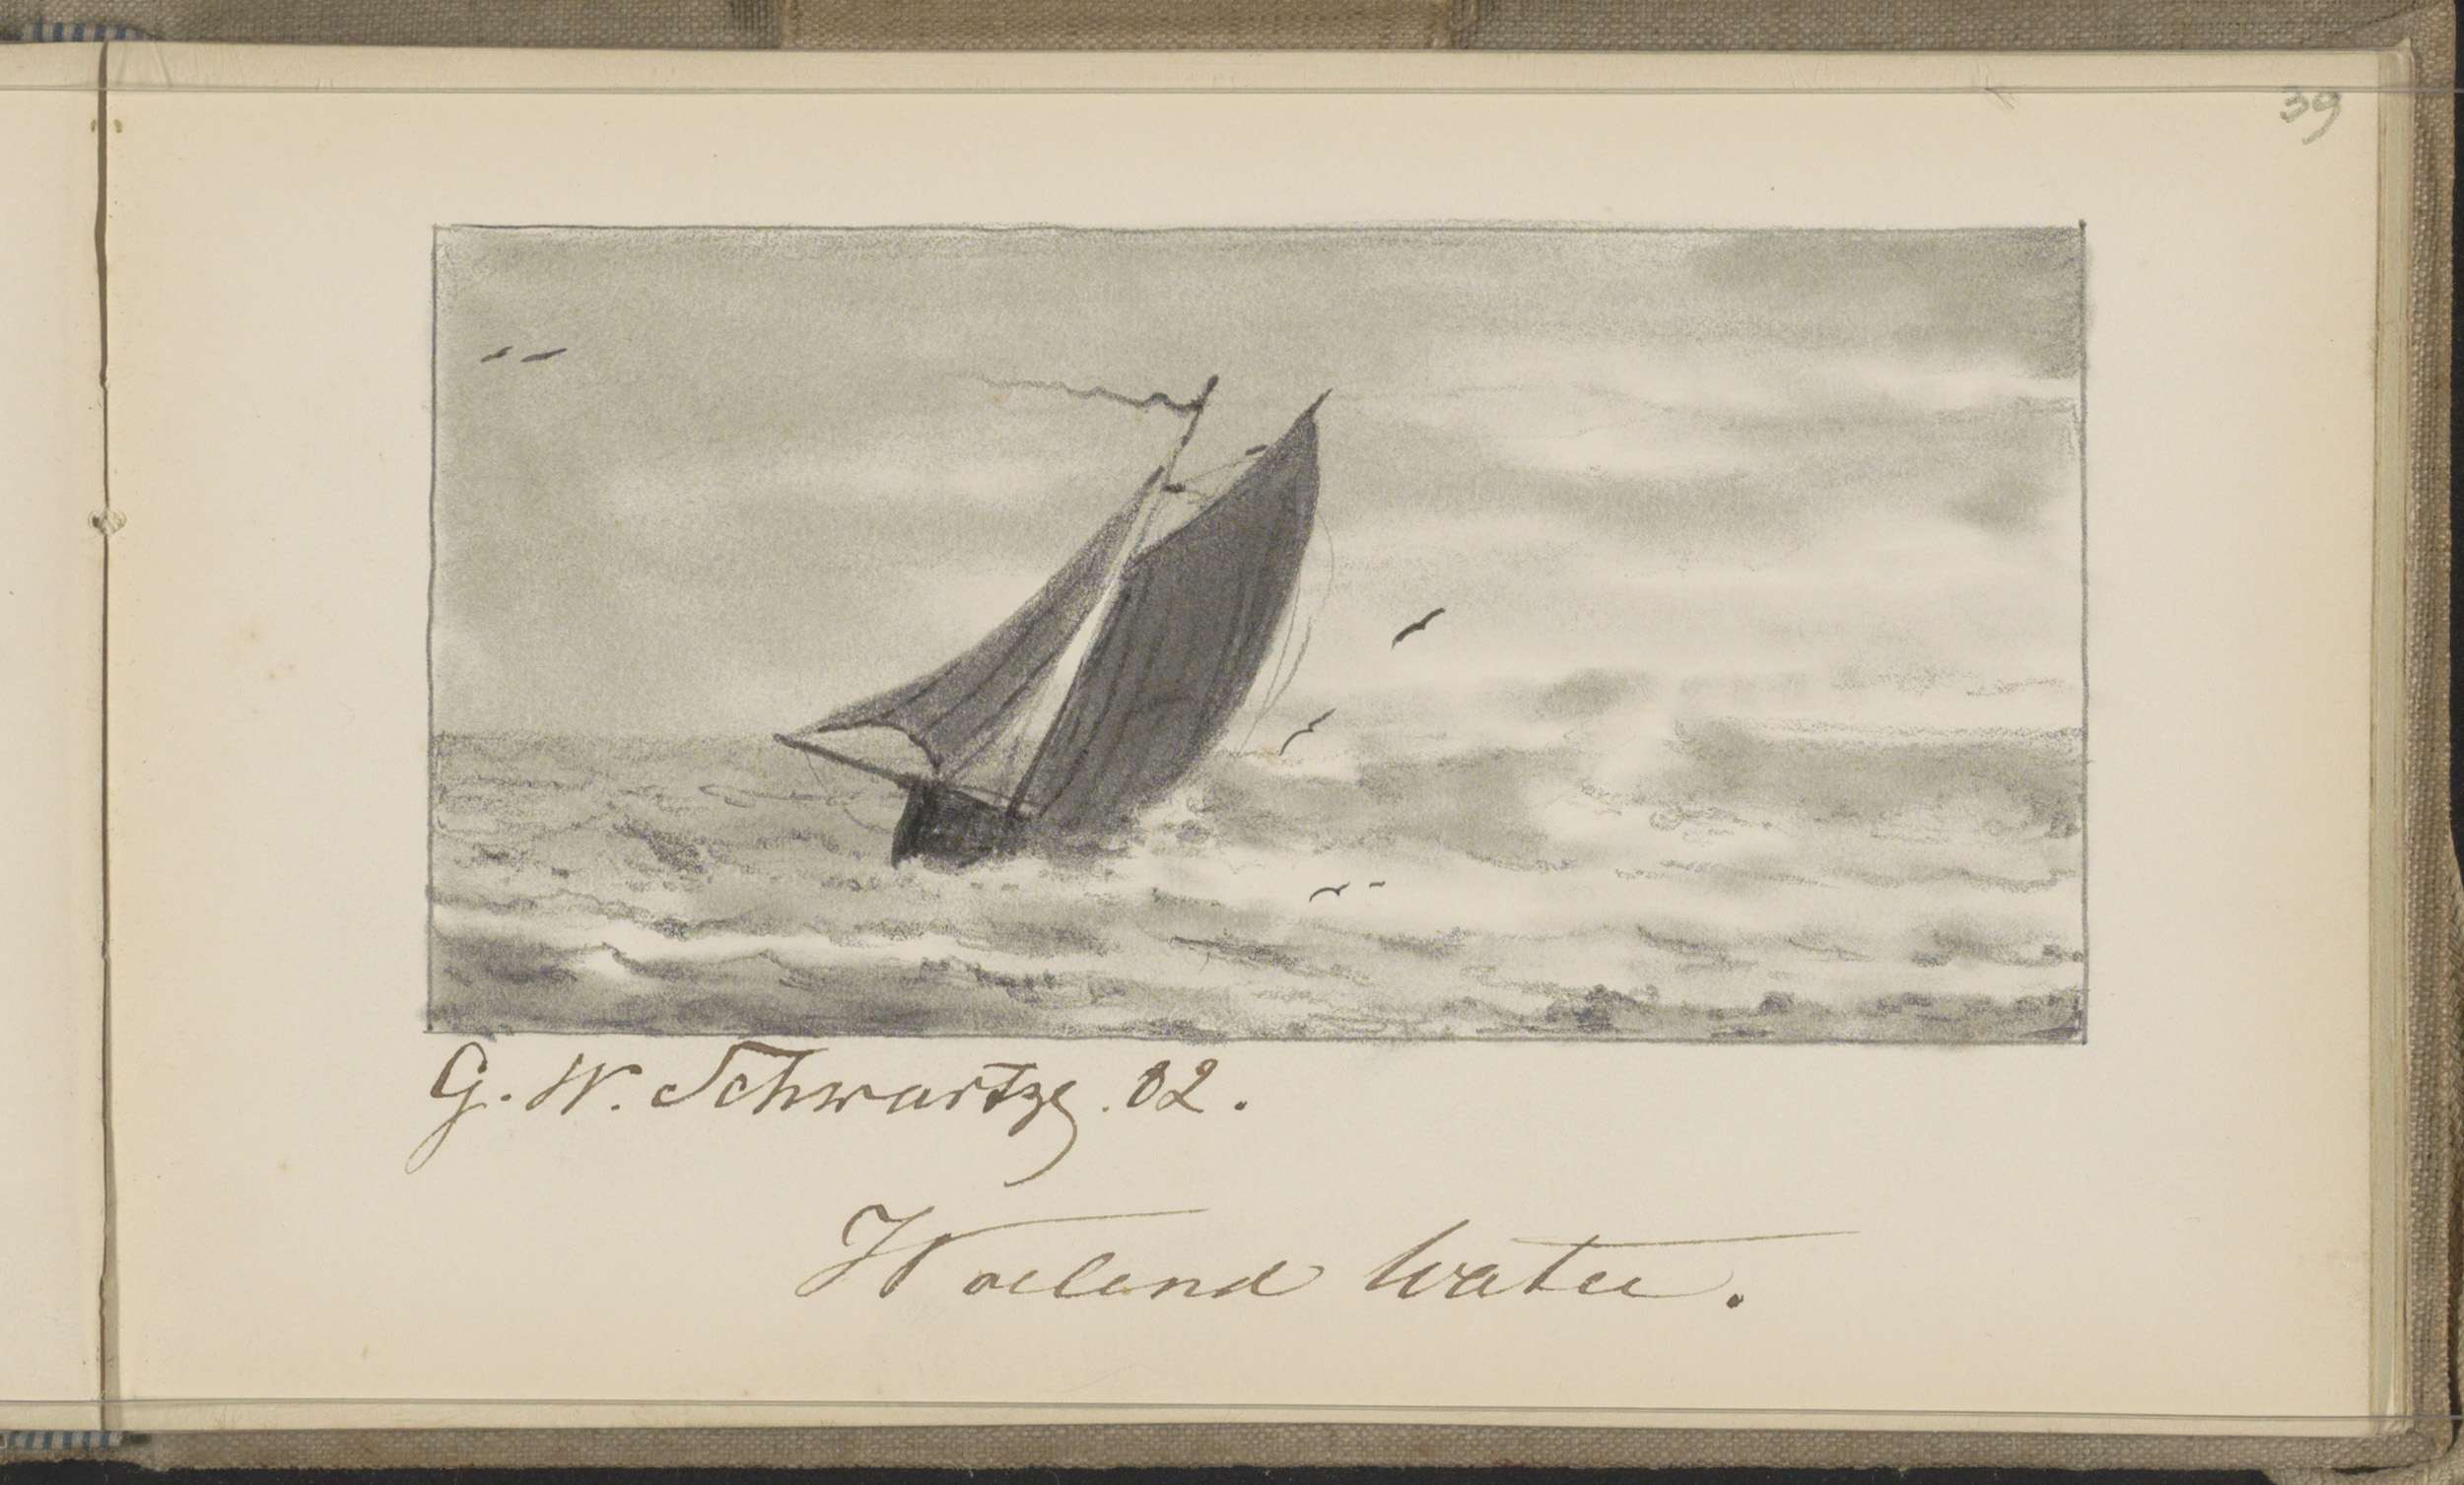 39
G. W. Schwartze. 82.
Woelend Water.